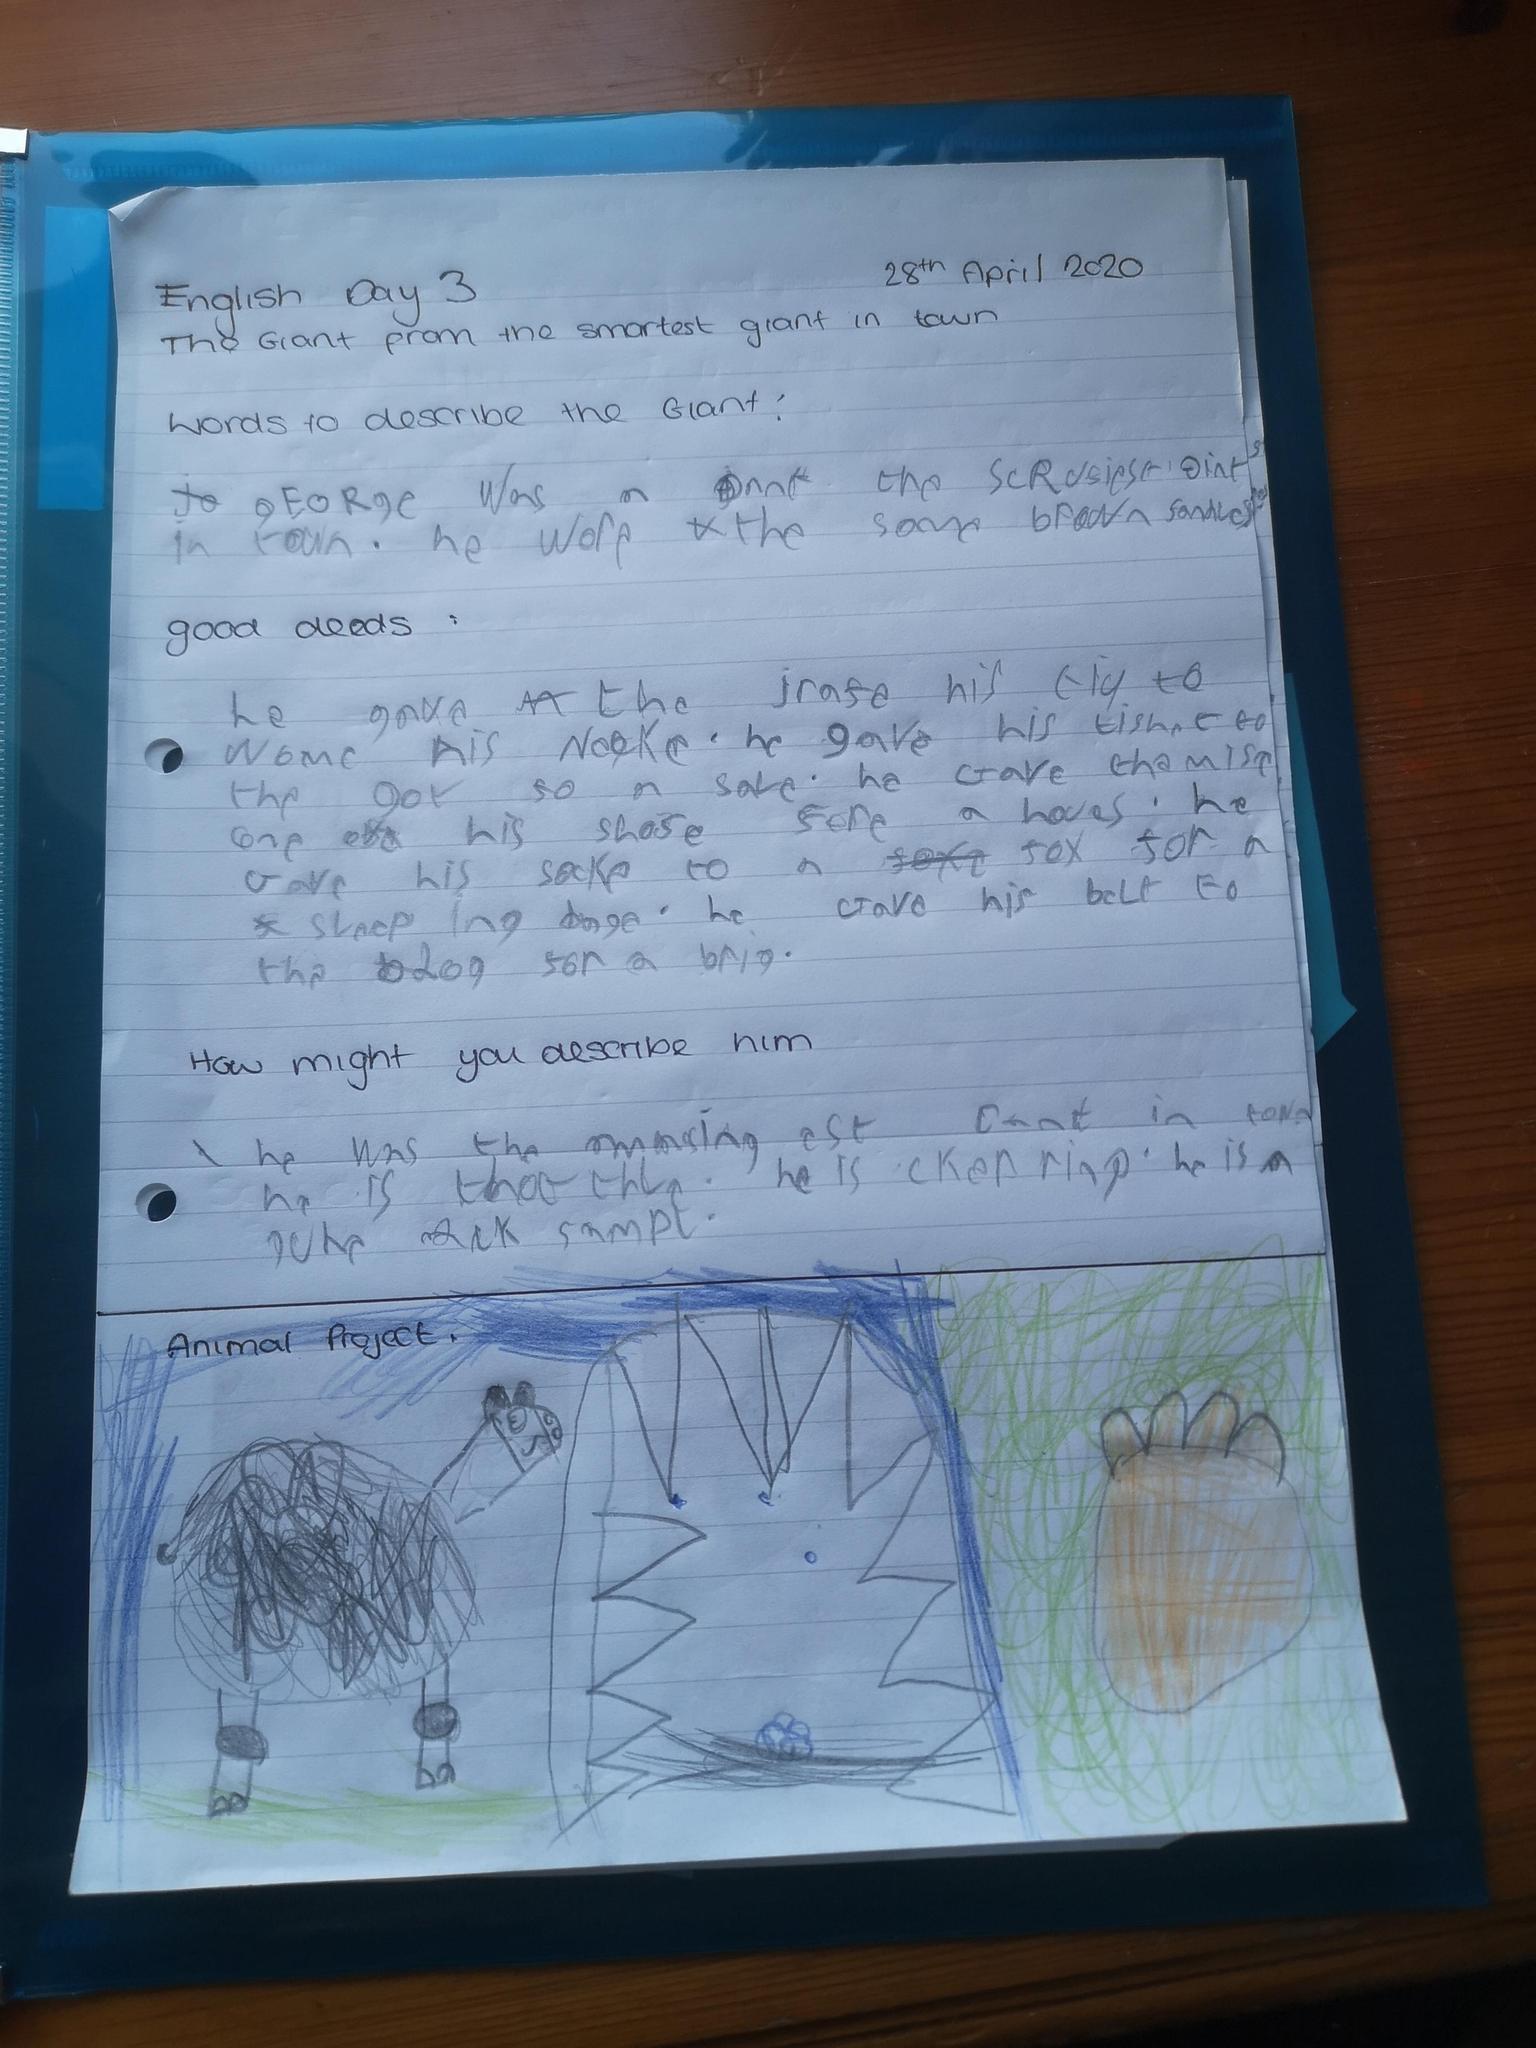 English Day 3 28th April 2020
The Giant from the smartest giant in town
Words to describe the Giant:
gEORge was a the
in town. he wore the same brown
good deeds:
he gave the his tiy to
wome his Neeke. he gave his tishrt to
the got so a sale. he Gave the mise
one his shose fore a hoves. he
Gave his socke to a fox for a
sleep ing bage. he Gave his belt to
the dog for a brig.
How might you describe him
he was the amasing est in town
he is he is he is a
Animal Project.